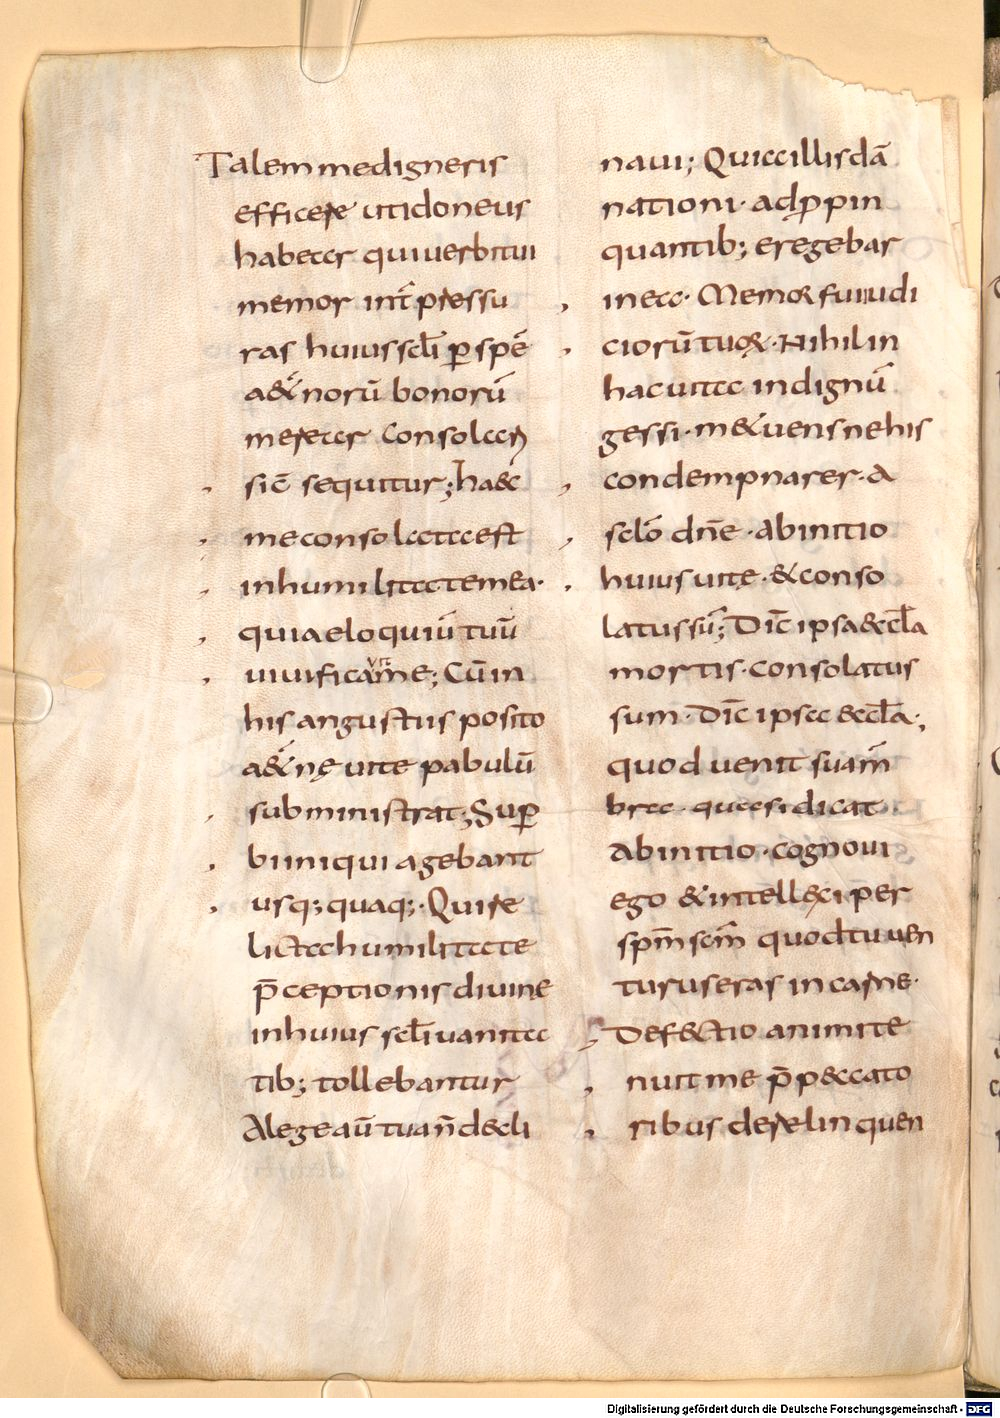 Talem me digneris
efficere ut idoneus
habear qui verbi tui
memor int̄ pressu
ras huius scl̄i ꝑ spē
a&́norū bonorū
merear Consolaꝝ
sic̄ sequitur; haec
me consolata est
in humilitate mea·
quia eloquiū tuū
vivificavit me; Cū in
his angustiis posito
a&́nę vite pabulū
subministrat; Suꝑ
bi iniqui agebant
usq; quaq;· Qui re
licta humilitate
p̄ceptionis divine
in huius scl̄i vanita
tib; tollebantur
A lege aū tua n̄ decli
navi; Qui a illis dā
nationi· ad ꝓpin
quantib; eregebar
in ea· Memor fui iudi
ciorū tuoꝝ· Nihil in
hac vita indignū
gessi· m&uens ne his
condempnarer· A
sclo̅ dn̄e· ab initio
huius vitę· & conso
latus sū; Dic̄ ipsa eccl̄a
mortis· consolatus
sum· Dic̄ ipsa eccl̄a·;
quod venit suam̄
bra· quasi dicat
ab initio· cognovi
ego & intellexi per
spm̄ scm̄ quod tu ven
turus eras in carne·
Defectio animi te
nuit me p̄ peccato
ribus derelinquen
Digitalisierung gefördert durch die Deutsche Forschungsgemeinschaft - DFG